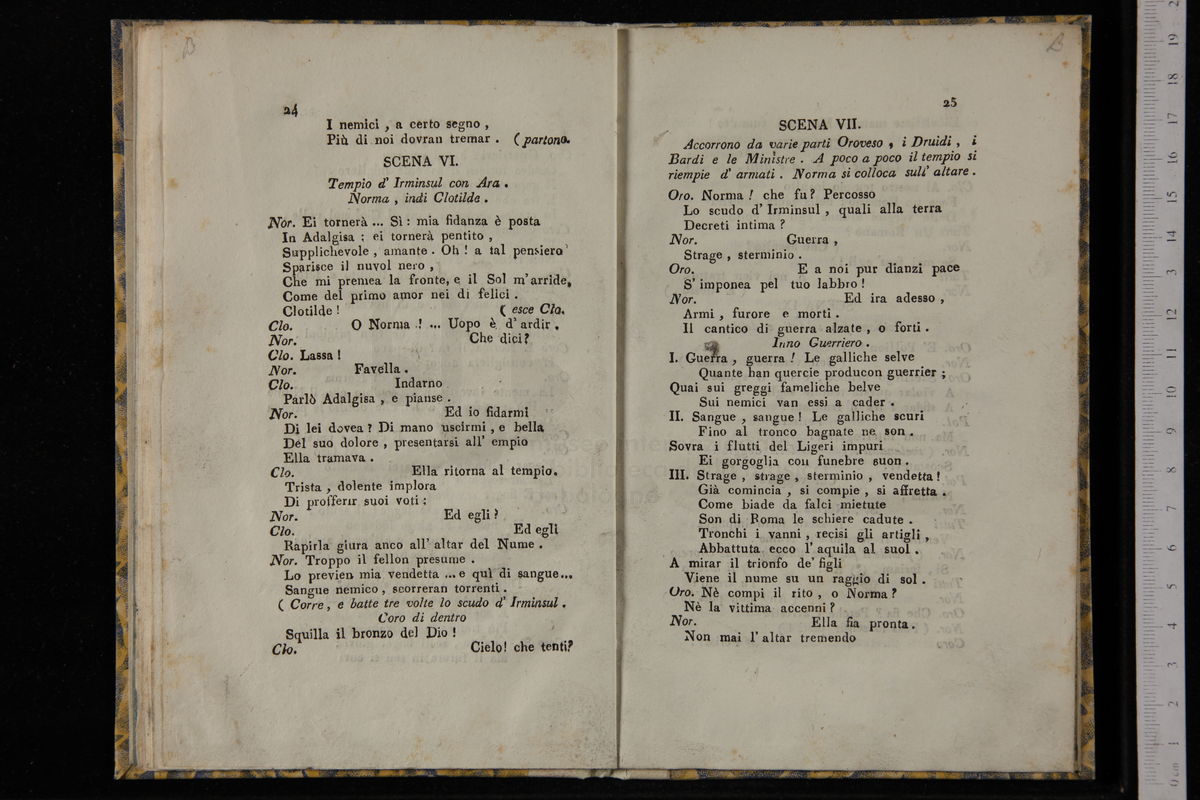 24
I nemici , a certo segno ,
Più di noi dovran tremar . ( partono.
SCENA VI.
Tempio d' Irminsul con Ara .
Norma , indi Clotilde .
Nor. Ei tornerà ... Sì : mia fidanza è posta
In Adalgisa : ei tornerà pentito ,
Supplichevole , amante . Oh ! a tal pensiero
Sparisce il nuvol nero ,
Che mi premea la fronte, e il Sol m'arride,
Come del primo amor nei dì felici .
Clotilde ! ( esce Clo.
Clo. O Norma ! ... Uopo è d'ardir .
Nor. Che dici ?
Clo. Lassa !
Nor. Favella .
Clo. Indarno
Parlò Adalgisa , e pianse .
Nor. Ed io fidarmi
Di lei dovea ? Di mano uscirmi , e bella
Del suo dolore , presentarsi all' empio
Ella tramava .
Clo. Ella ritorna al tempio.
Trista , dolente implora
Di profferir suoi voti :
Nor. Ed egli ?
Clo. Ed egli
Rapirla giura anco all' altar del Nume .
Nor. Troppo il fellon presume .
Lo previen mia vendetta ... e quì di sangue...
Sangue nemico , scorreran torrenti .
( Corre , e batte tre volte lo scudo d' Irminsul .
Coro di dentro
Squilla il bronzo del Dio !
Clo. Cielo! che tenti?
25
SCENA VII.
Accorrono da varie parti Oroveso , i Druidi , i
Bardi e le Ministre . A poco a poco il tempio si
riempie d' armati . Norma si colloca sull' altare .
Oro. Norma ! che fu? Percosso
Lo scudo d' Irminsul , quali alla terra
Decreti intima ?
Nor. Guerra ,
Strage , sterminio .
Oro. E a noi pur dianzi pace
S' imponea pel tuo labbro !
Nor. Ed ira adesso ,
Armi , furore e morti .
Il cantico di guerra alzate , o forti .
Inno Guerriero .
I. Guerra , guerra ! Le galliche selve
Quante han quercie producon guerrier ;
Quai sui greggi fameliche belve
Sui nemici van essi a cader .
II. Sangue , sangue ! Le galliche scuri
Fino al tronco bagnate ne son .
Sovra i flutti del Ligeri impuri
Ei gorgoglia con funebre suon .
III. Strage , strage , sterminio , vendetta !
Già comincia , si compie , si affretta .
Come biade da falci mietute
Son di Roma le schiere cadute .
Tronchi i vanni , recisi gli artigli ,
Abbattuta ecco l' aquila al suol .
A mirar il trionfo de' figli
Viene il nume su un raggio di sol .
Oro. Nè compi il rito , o Norma ?
Nè la vittima accenni ?
Nor. Ella fia pronta .
Non mai l' altar tremendo